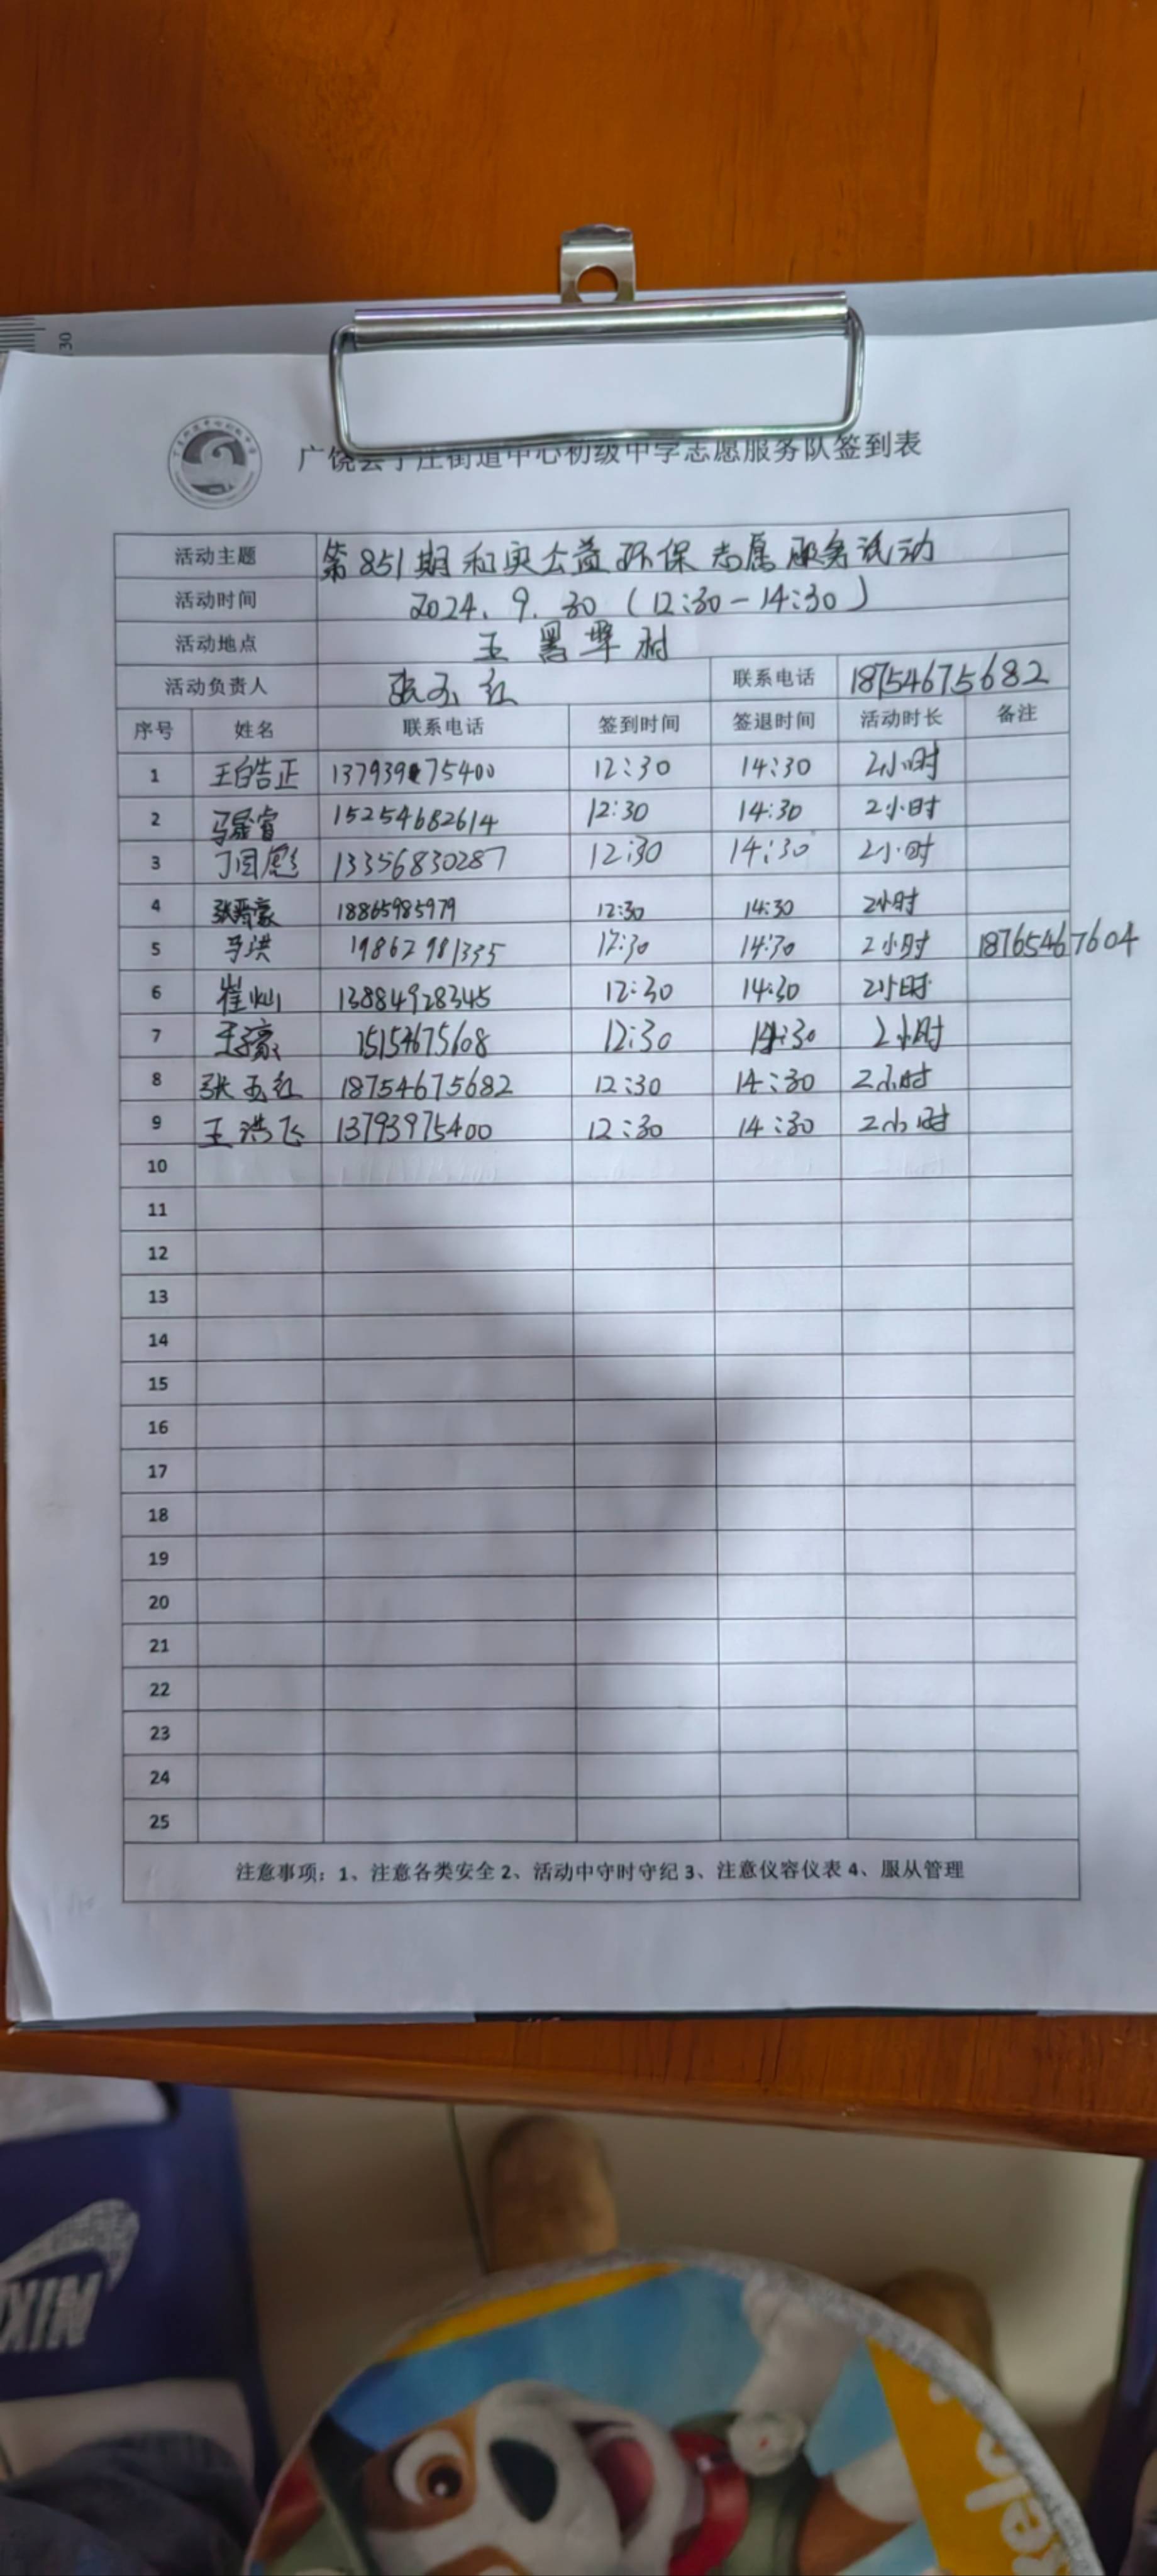 30
广饶县丁庄街道中心初级中学志愿服务队签到表
活动主题 第851期和美公益环保志愿服务活动
活动时间 2024.9.30(12:30-14:30)
活动地点 王署埠村
活动负责人 张玉红 联系电话 18754675682
序号 姓名 联系电话 签到时间 签退时间 活动时长 备注
1 王皓正 13793975400 12:30 14:30 2小时
2 马晟睿 15254682614 12:30 14:30 2小时
3 丁国彪 13356830287 12:30 14:30 2小时
4 张晋豪 18865985979 12:30 14:30 2小时
5 马洪 19862981335 12:30 14:30 2小时 18765467604
6 崔灿 13884928345 12:30 14:30 2小时
7 王子豪 15154675608 12:30 14:30 2小时
8 张玉红 18754675682 12:30 14:30 2小时
9 王洪飞 13793975400 12:30 14:30 2小时
10
11
12
13
14
15
16
17
18
19
20
21
22
23
24
25
注意事项：1、注意各类安全 2、活动中守时守纪 3、注意仪容仪表 4、服从管理
NIKE